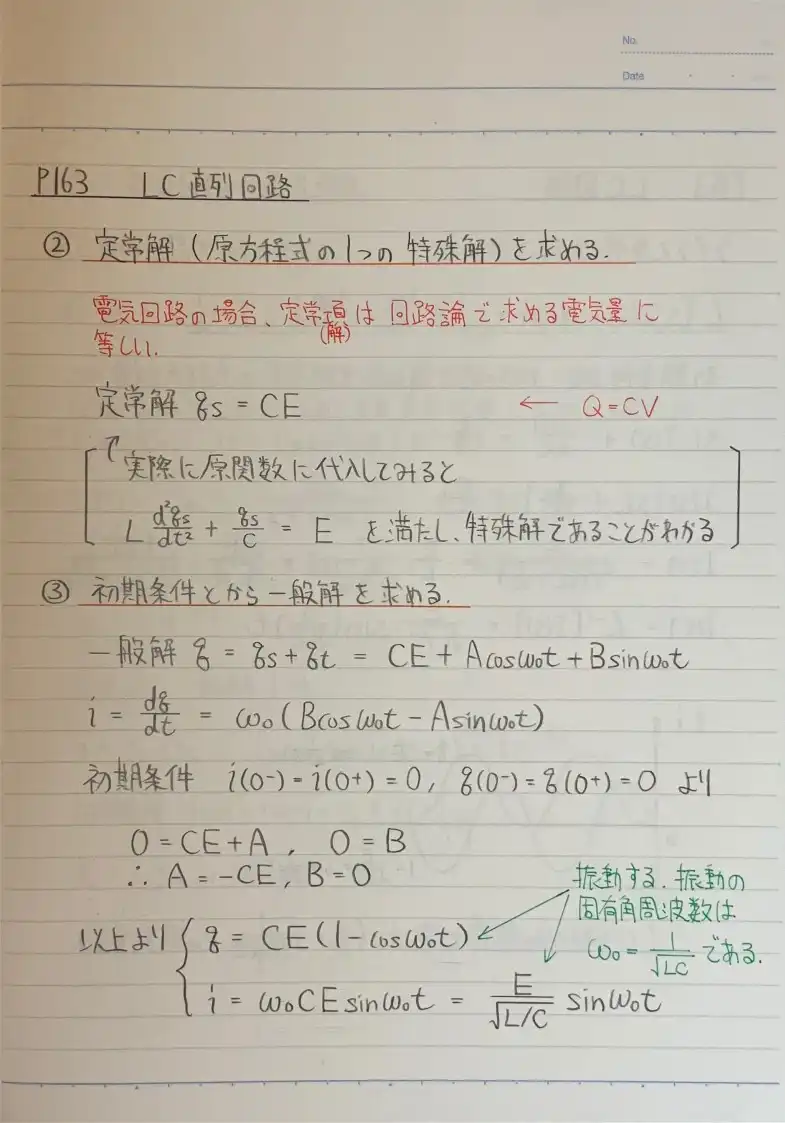 No.
Date
P163 LC直列回路
② 定常解(原方程式の1つの特殊解)を求める.
電気回路の場合、定常項は回路論で求める電気量に
(解)
等しい.
定常解 qs = CE ← Q=CV
↑実際に原関数に代入してみると
L d²qs/dt² + qs/C = E を満たし、特殊解であることがわかる
③ 初期条件とから一般解を求める.
一般解 q = qs + qt = CE + Acosω₀t + Bsinω₀t
i = dq/dt = ω₀(Bcosω₀t − Asinω₀t)
初期条件 i(0-) = i(0+) = 0, q(0-) = q(0+) = 0 より
0 = CE + A , 0 = B
∴ A = −CE, B = 0
振動する. 振動の
固有角周波数は
ω₀ = 1/√LC である.
以上より { q = CE(1 − cosω₀t)
i = ω₀CEsinω₀t = E/√L/C sinω₀t